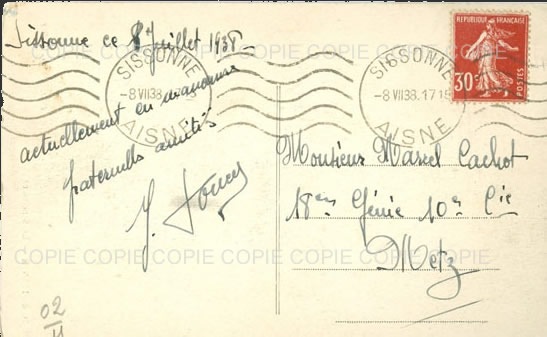 Sissonne ce 8 juillet 1938
actuellement en manœuvre
fraternelles amitiés
SISSONNE
-8 VII 38.17 15
AISNE
SISSONNE
-8 VII 38.17 15
AISNE
REPUBLIQUE FRANÇAISE
30c
POSTES
Monsieur Marcel Cachot
18em Génie 10e Cie
Metz
02
COPIE COPIE COPIE COPIE COPIE COPIE
COPIE COPIE COPIE COPIE COPIE COPIE
COPIE COPIE COPIE COPIE COPIE COPIE